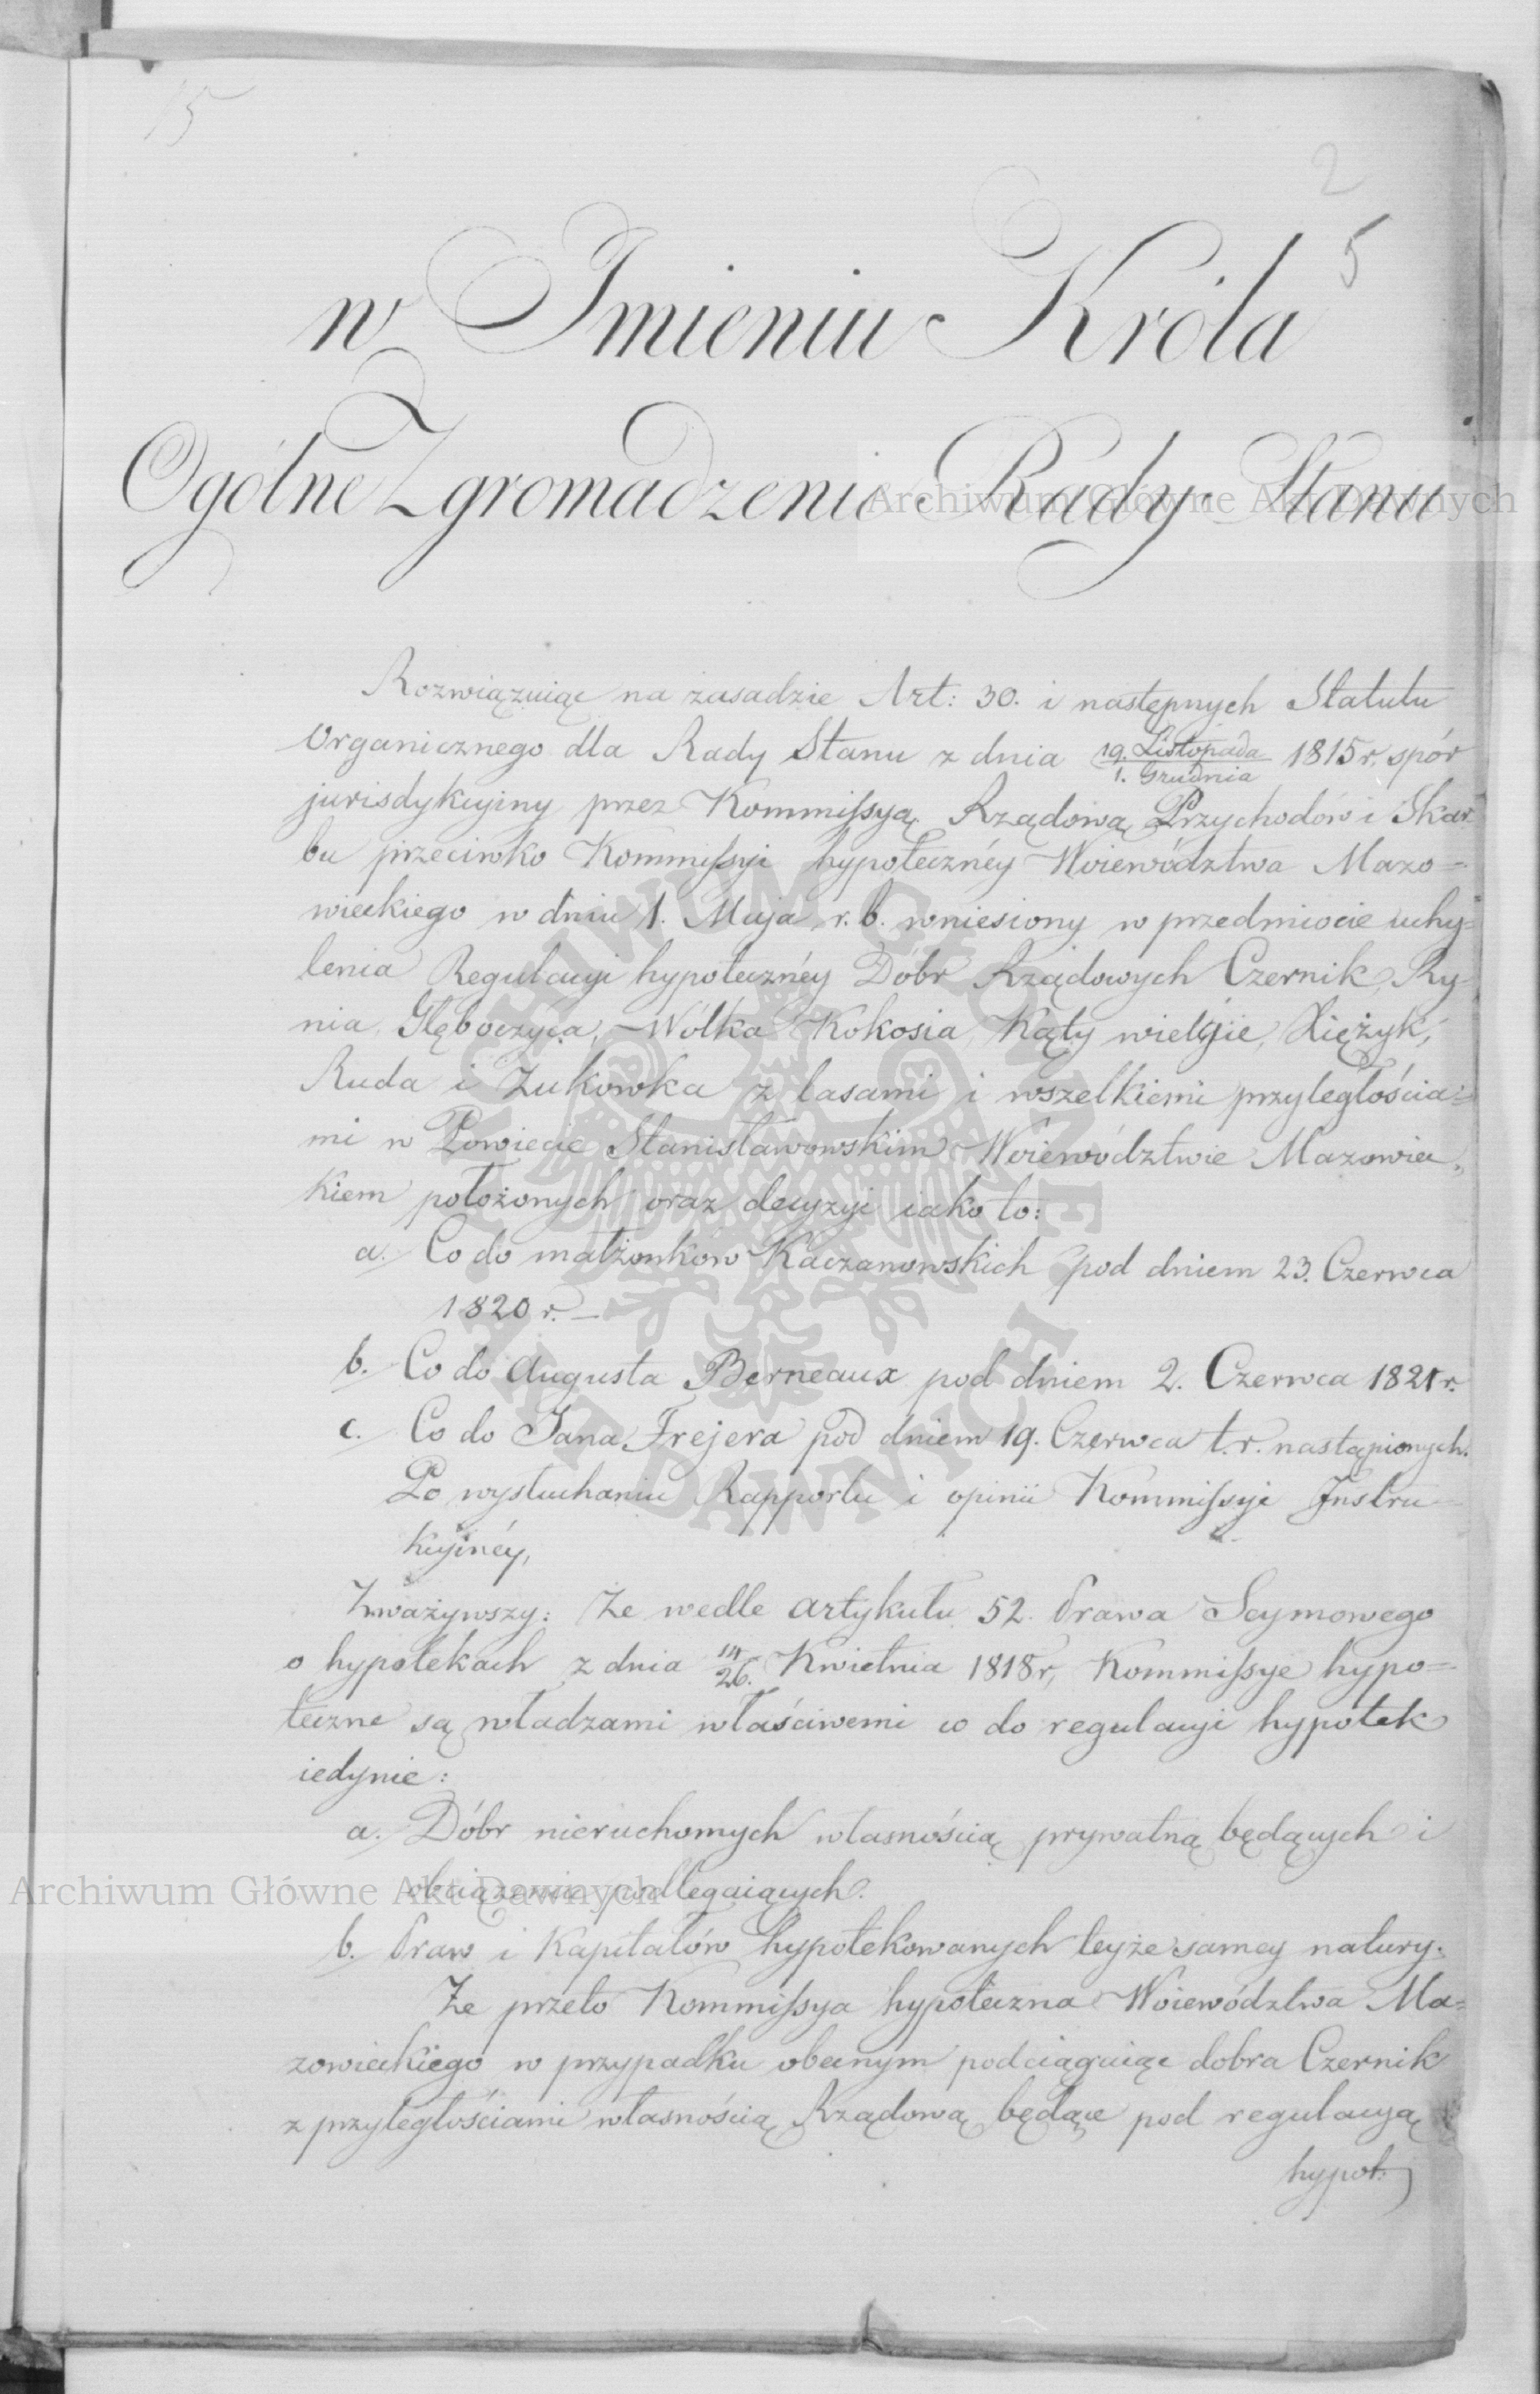 15
2
5
w Imieniu Króla
Ogólne Zgromadzenie Rady Stanu
Rozwiązuiąc na zasadzie Art: 30. i następnych Statutu
Organicznego dla Rady Stanu z dnia 19. Listopada / 1. Grudnia 1815 r. spór
jurisdykcyiny przez Kommissyą Rządową Przychodów i Skar=
bu przeciwko Kommissyi hypoteczney Woiewództwa Mazo=
wieckiego w dniu 1. Maja r. b. wniesiony w przedmiocie uchy=
lenia Regulacyi hypoteczney Dóbr Rządowych Czernik, Ry=
nia, Głęboczyca, Wólka Kokosia, Kąty wielgie, Xiężyk,
Ruda i Zukowka z lasami i wszelkiemi przyległościa=
mi w Powiecie Stanisławowskim Woiewództwie Mazowiec=
kiem położonych oraz decyzyi iako to:
a. Co do małżonków Kaczanowskich pod dniem 23. Czerwca
1820 r. –
b. Co do Augusta Berneaux pod dniem 2. Czerwca 1821 r.
c. Co do Jana Frejera pod dniem 19. Czerwca t. r. nastąpionych.
Po wysłuchaniu Rapportu i opinii Kommissyi Instru=
kcyiney,
Zważywszy: Że wedle artykułu 52. Prawa Seymowego
o hypotekach z dnia 14/26. Kwietnia 1818 r, Kommissye hypo=
teczne są władzami właściwemi co do regulacyi hypotek
iedynie:
a. Dóbr nieruchomych własnością prywatną będących i
obciążeniu podlegaiących.
b. Praw i Kapitałów hypotekowanych teyże samey natury.
Że przeto Kommissya hypoteczna Woiewództwa Ma=
zowieckiego w przypadku obecnym podciągaiąc dobra Czernik
z przyległościami własnością Rządową będące pod regulacyą
hypot:
Archiwum Główne Akt Dawnych
Archiwum Główne Akt Dawnych
ARCHIWUM GŁÓWNE AKT DAWNYCH